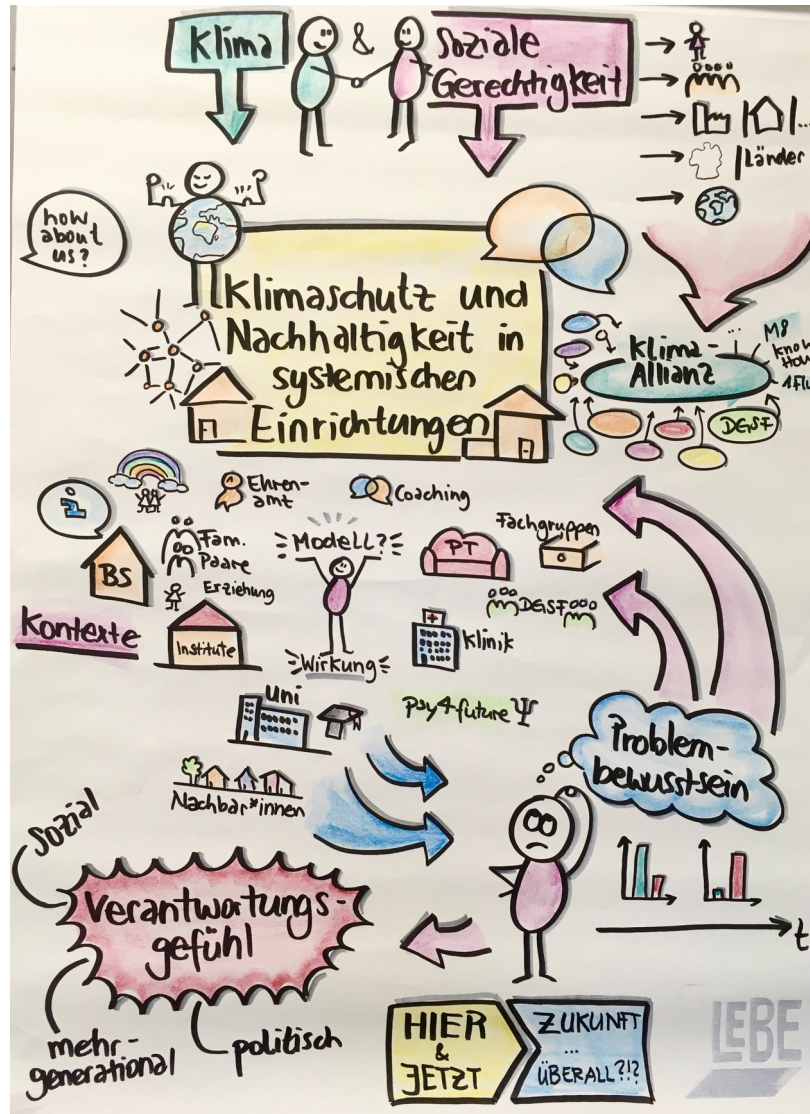 Klima
&
Soziale
Gerechtigkeit
Länder
how
about
us?
Klimaschutz und
Nachhaltigkeit in
systemischen
Einrichtungen
Klima-
Allianz
...
M8
DGSF
Ehren-
amt
Coaching
BS
Fam.
Paare
Erziehung
Modell?
PT
Fachgruppen
DGSF
Kontexte
Institute
Wirkung
Klinik
Uni
psy4future Ψ
Nachbar*innen
Problem-
bewusstsein
sozial
Verantwortungs-
gefühl
mehr-
generational
politisch
t
HIER
&
JETZT
ZUKUNFT
...
ÜBERALL?!?
LEBE